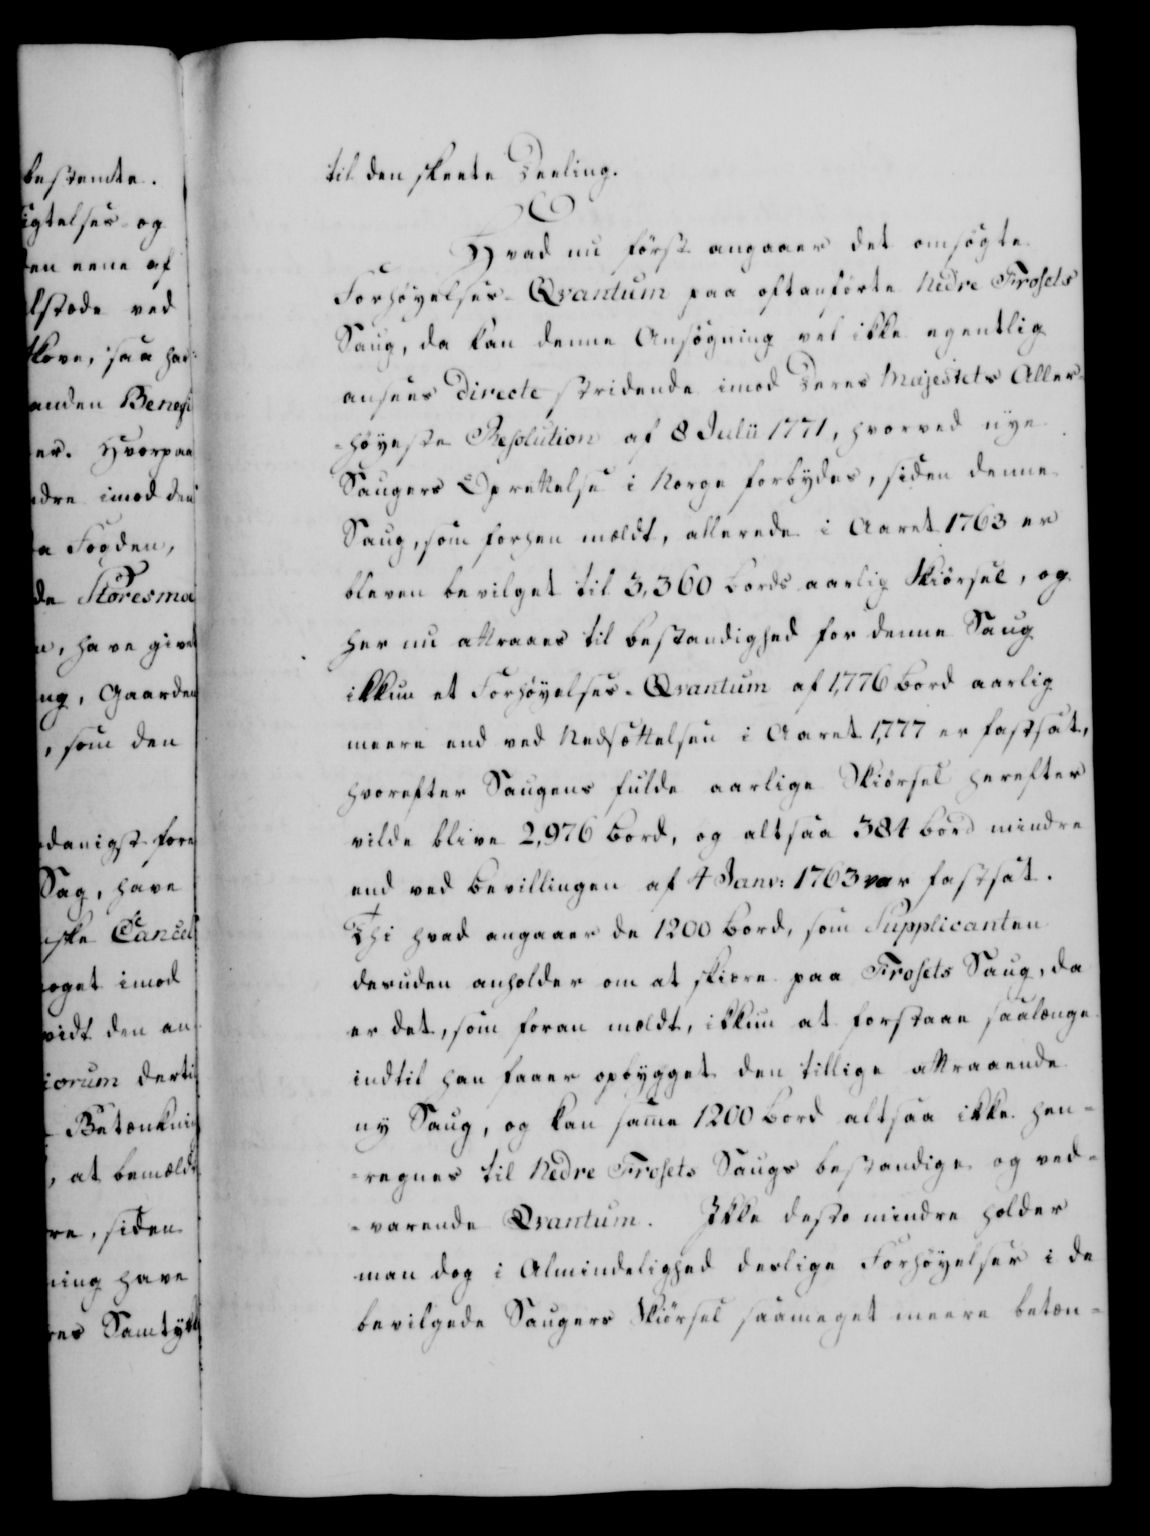 bestemte.
igtelser og
en eene af
lstæde ved
kove, saa har
anden Benefi
er. Hvorpaa
dre imod den
a Fogden,
de Støresma
n, have givet
ng, Gaarden
, som den
danigst fore
Sag, have
ske Cancel
oget imod
vidt den an
iorum derti
Betænkni
, at bemeldt
re, siden
ning have
res Samtykk
til den skeete Deeling.
Hvad nu først angaaer det omsøgte
Forhøyelses-Qvantum paa oftanførte Nedre Frosets
Saug, da kan denne Ansøgning vel ikke egentlig
ansees directe stridende imod Deres Majestets Aller-
-høyeste Resolution af 8 Julii 1771, hvorved nye
Saugers Oprettelse i Norge forbydes, siden denne
Saug, som forhen meldt, allerede i Aaret 1763 er
bleven bevilget til 3,360 bords aarlig Skiørsel, og
her nu attraaes til bestandighed for denne Saug
ikkun et Forhøyelses-Qvantum af 1,776 bord aarlig
meere end ved Nedsættelsen i Aaret 1,777 er fastsat,
hvorefter Saugens fulde aarlige Skiørsel herefter
vilde blive 2,976 Bord, og altsaa 384 bord mindre
end ved Bevillingen af 4 Janv: 1763 var fastsat.
Thi hvad angaaer de 1200 Bord, som Supplicanten
desuden anholder om at skiære paa Frosets Saug, da
er det, som foran meldt, ikkun at forstaae saalænge
indtil han faaer opbygget den tillige attraaende
ny Saug, og kan samme 1200 Bord altsaa ikke hen-
-regnes til Nedre Frosets Saugs bestandige og ved-
-varende Qvantum. Ikke desto mindre holder
man dog i Almindelighed deslige Forhøyelser i de
bevilgede Saugers Skiørsel saameget meere betæn-